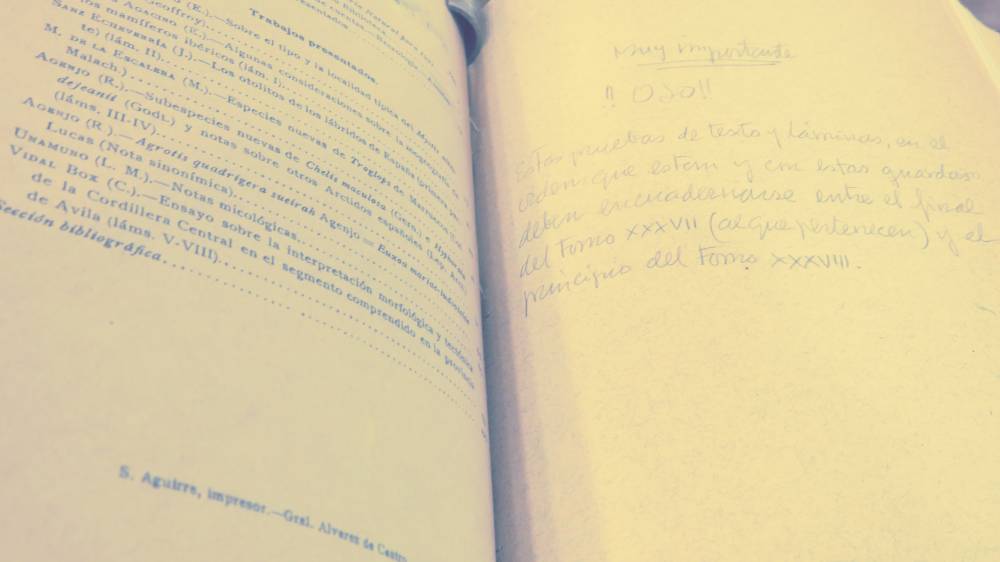 (E.).—Sobre el tipo y la localidad típica del
Geoffroy)
Trabajos presentados.
Agacino (E.).—Algunas consideraciones sobre la
los mamíferos ibéricos (lám. I)
Sanz Echeverría (J.).—Los otolitos de los lábridos de España (primera
te) (lám. II)
M. de la Escalera (M.).—Especies nuevas de Troglops de Marruecos (Col.
Malach.)
Agenjo (R.).—Subespecies nuevas de Chelis maculosa (Gern.) e
dejeanii (Godt.) y notas sobre otros Arctidos españoles (Lep.
(láms. III-IV)
Agenjo (R.).—Agrotis quadrigera sueirah Agenjo = Euxoa
Lucas (Nota sinonímica)
Unamuno (L. M.).—Notas micológicas
Vidal Box (C.).—Ensayo sobre la interpretación morfológica y tectónica
de la Cordillera Central en el segmento comprendido en la provincia
de Avila (láms. V-VIII)
Sección bibliográfica
S. Aguirre, impresor.—Gral. Alvarez de Castro
Muy importante
¡¡ OJO!!
Estas pruebas de texto y láminas, en el
orden que estan y con estas guardas
deben encuadernarse entre el final
del Tomo XXXVII (al que pertenecen) y el
principio del Tomo XXXVIII.